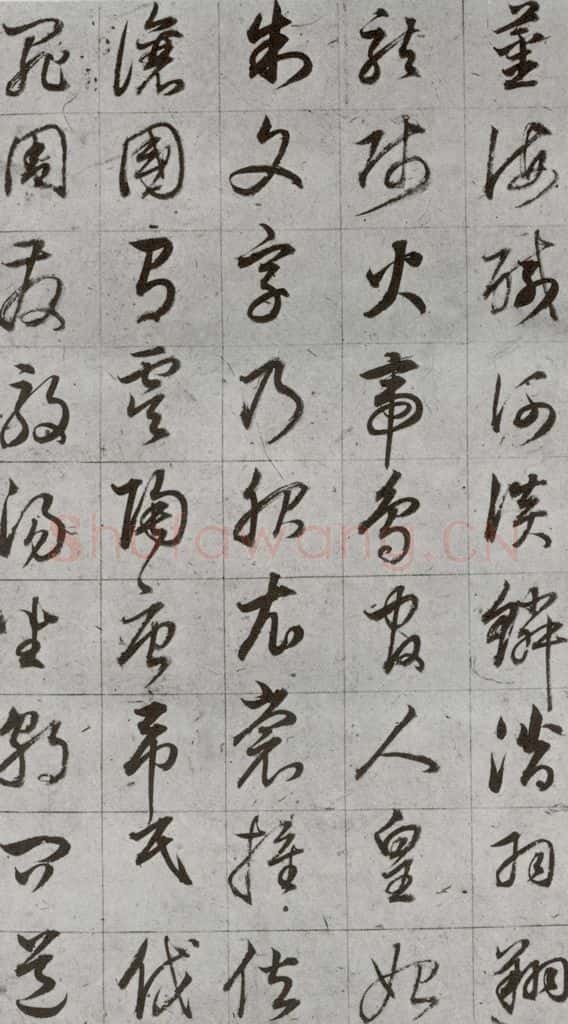 薑海鹹河淡鱗潛羽翔
龍師火帝鳥官人皇始
制文字乃服衣裳推位
讓國有虞陶唐弔民伐
罪周發殷湯坐朝問道
Shufawang.CN